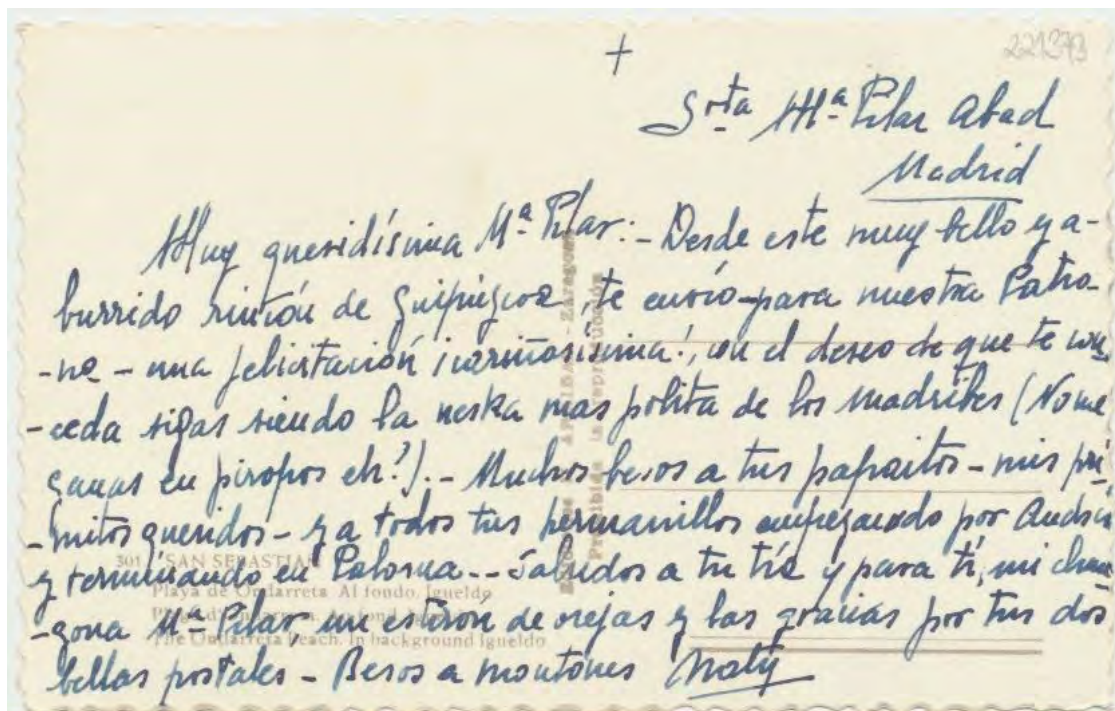 221378
+
Srta Mª Pilar Abad
Madrid
Muy queridísima Mª Pilar: - Desde este muy bello y a-
burrido rincón de Guipúzcoa, te envío - para nuestra Patro-
-na - una felicitación ¡cariñosísima!, con el deseo de que te con
-ceda sigas siendo la neska mas polita de los madriles (No me
ganas en piropos eh!). - Muchos besos a tus papaitos - mis pri
-mitos queridos - y a todos tus hermanillos empezando por
y terminando en Paloma -- Saludos a tu tía y para tí, mi
-gona Mª Pilar, un estirón de orejas y las gracias por tus dos
bellas postales - Besos a montones Maty
301 SAN SEBASTIAN
Playa de Ondarreta. Al fondo, Igueldo
The Ondarreta beach. In background Igueldo
Zaragoza
Prohibida la reproducción